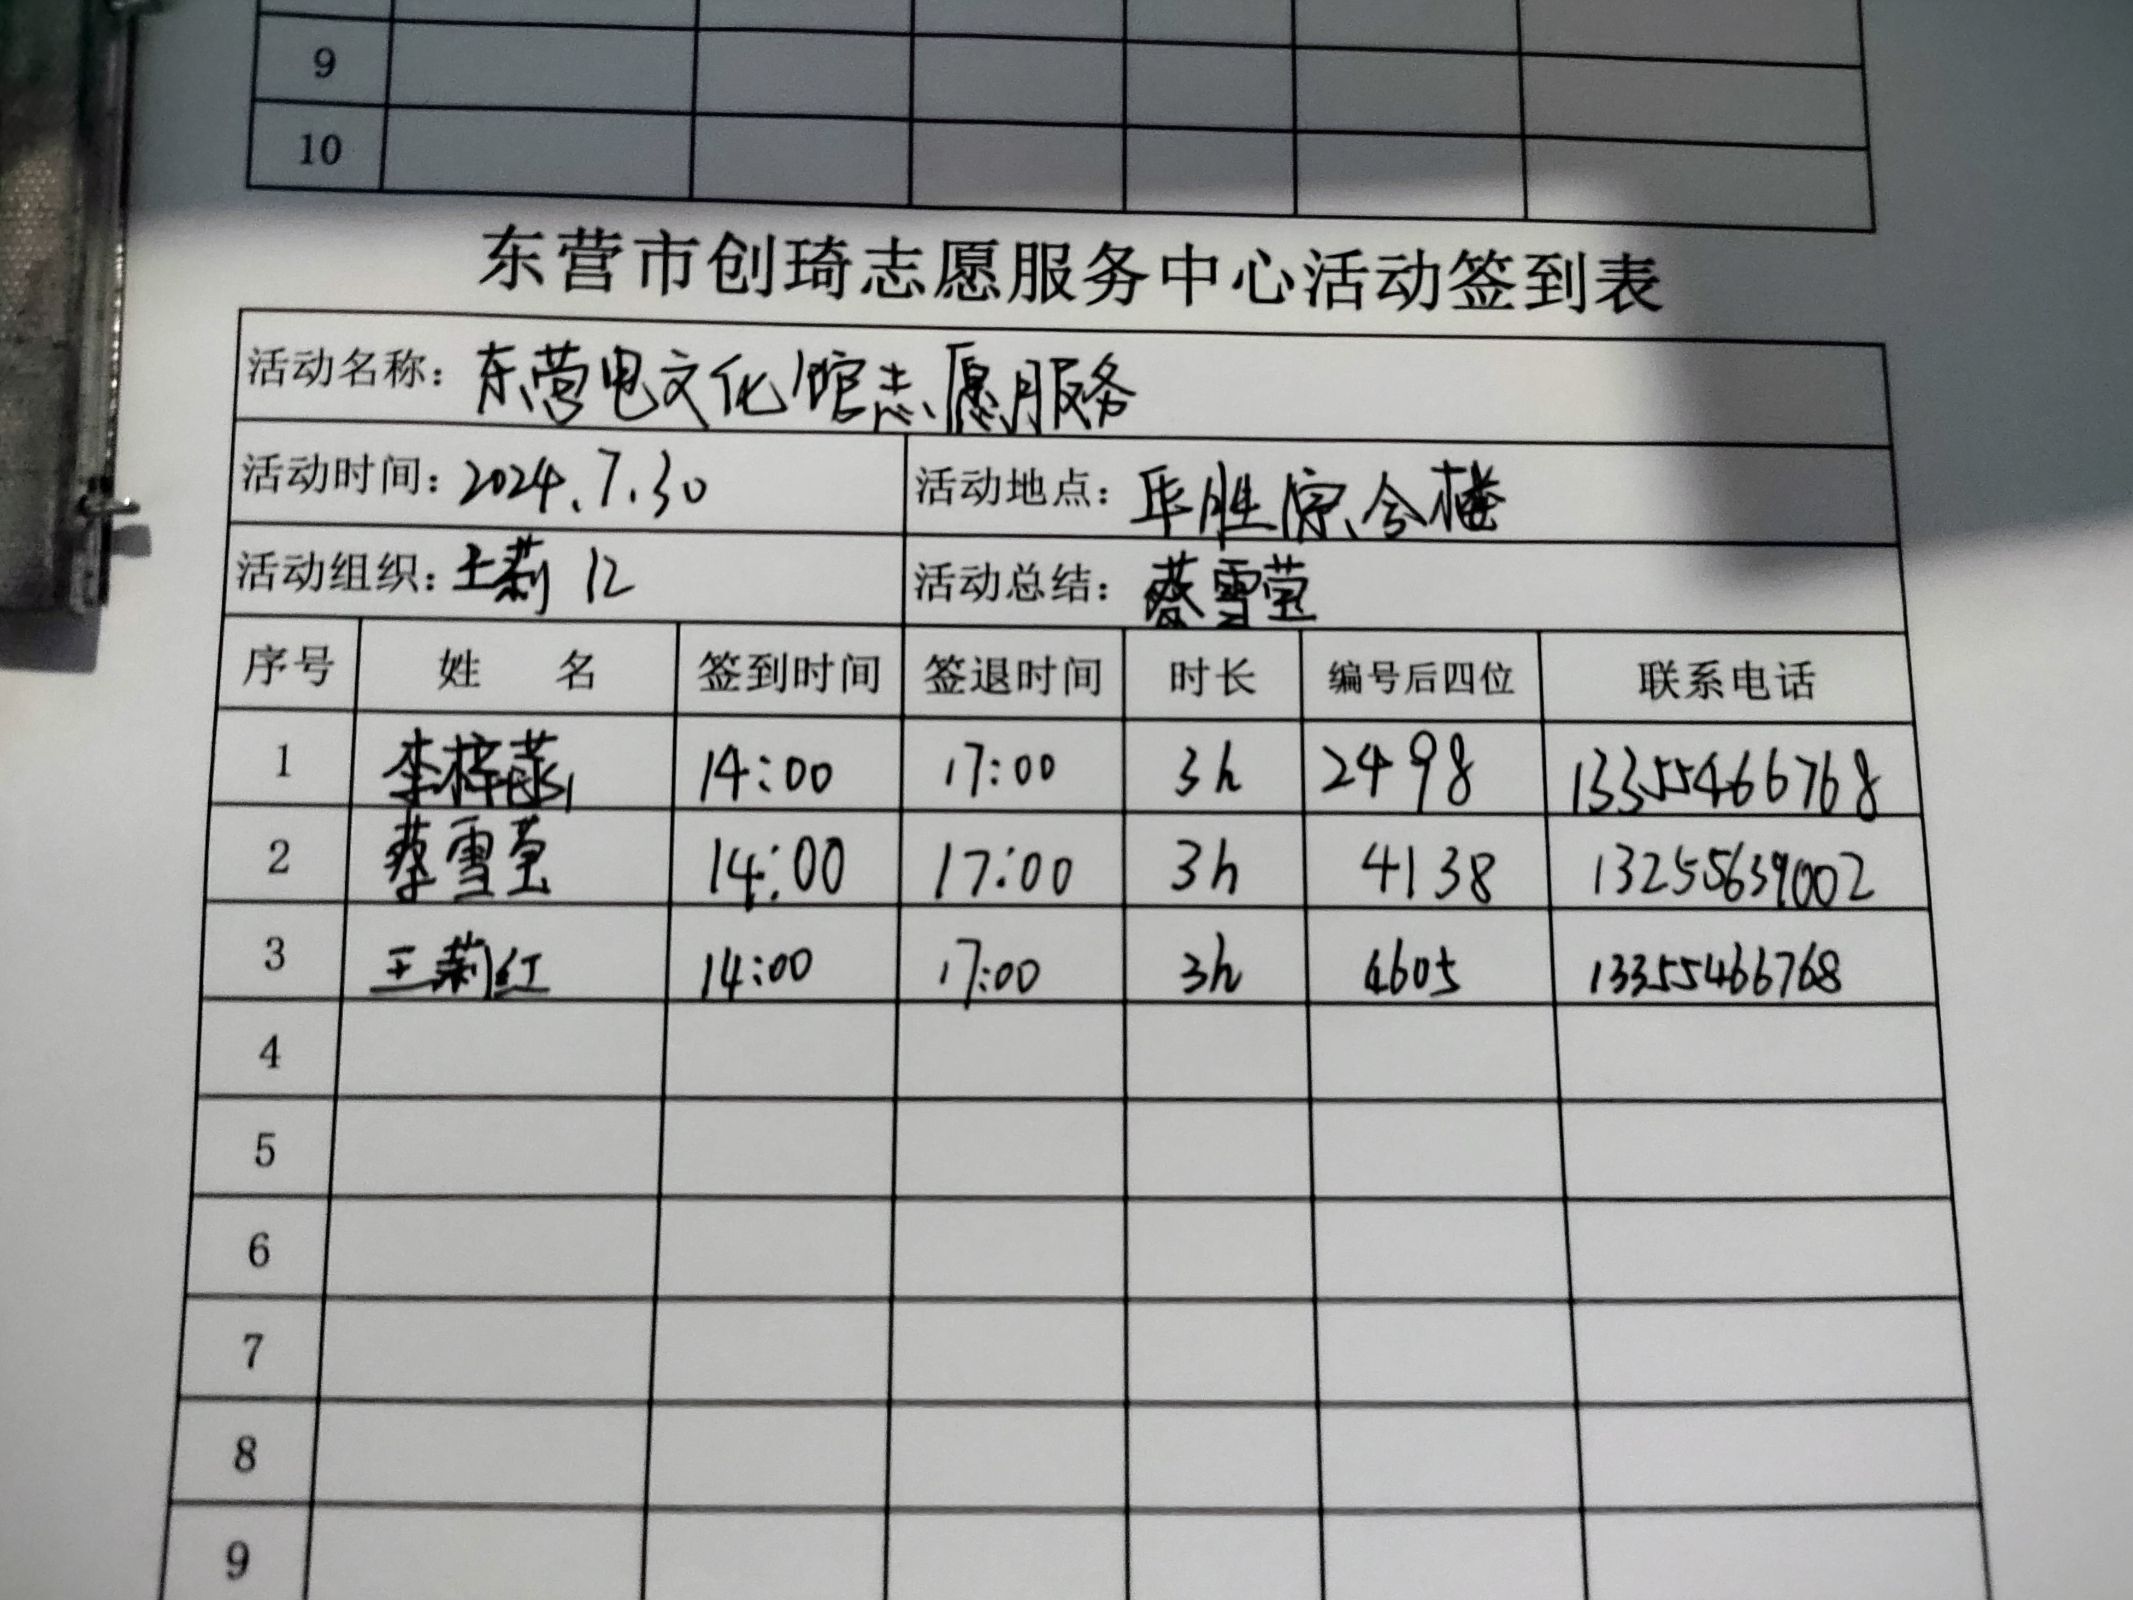 9
10
东营市创琦志愿服务中心活动签到表
活动名称：东营电文化馆志愿服务
活动时间：2024.7.30 活动地点：
活动组织：王莉红 活动总结：蔡雪莹
序号 姓 名 签到时间 签退时间 时长 编号后四位 联系电话
1 李梓菡 14:00 17:00 3h 2498 13355466768
2 蔡雪莹 14:00 17:00 3h 4138 13255639002
3 王莉红 14:00 17:00 3h 4605 13355466768
4
5
6
7
8
9